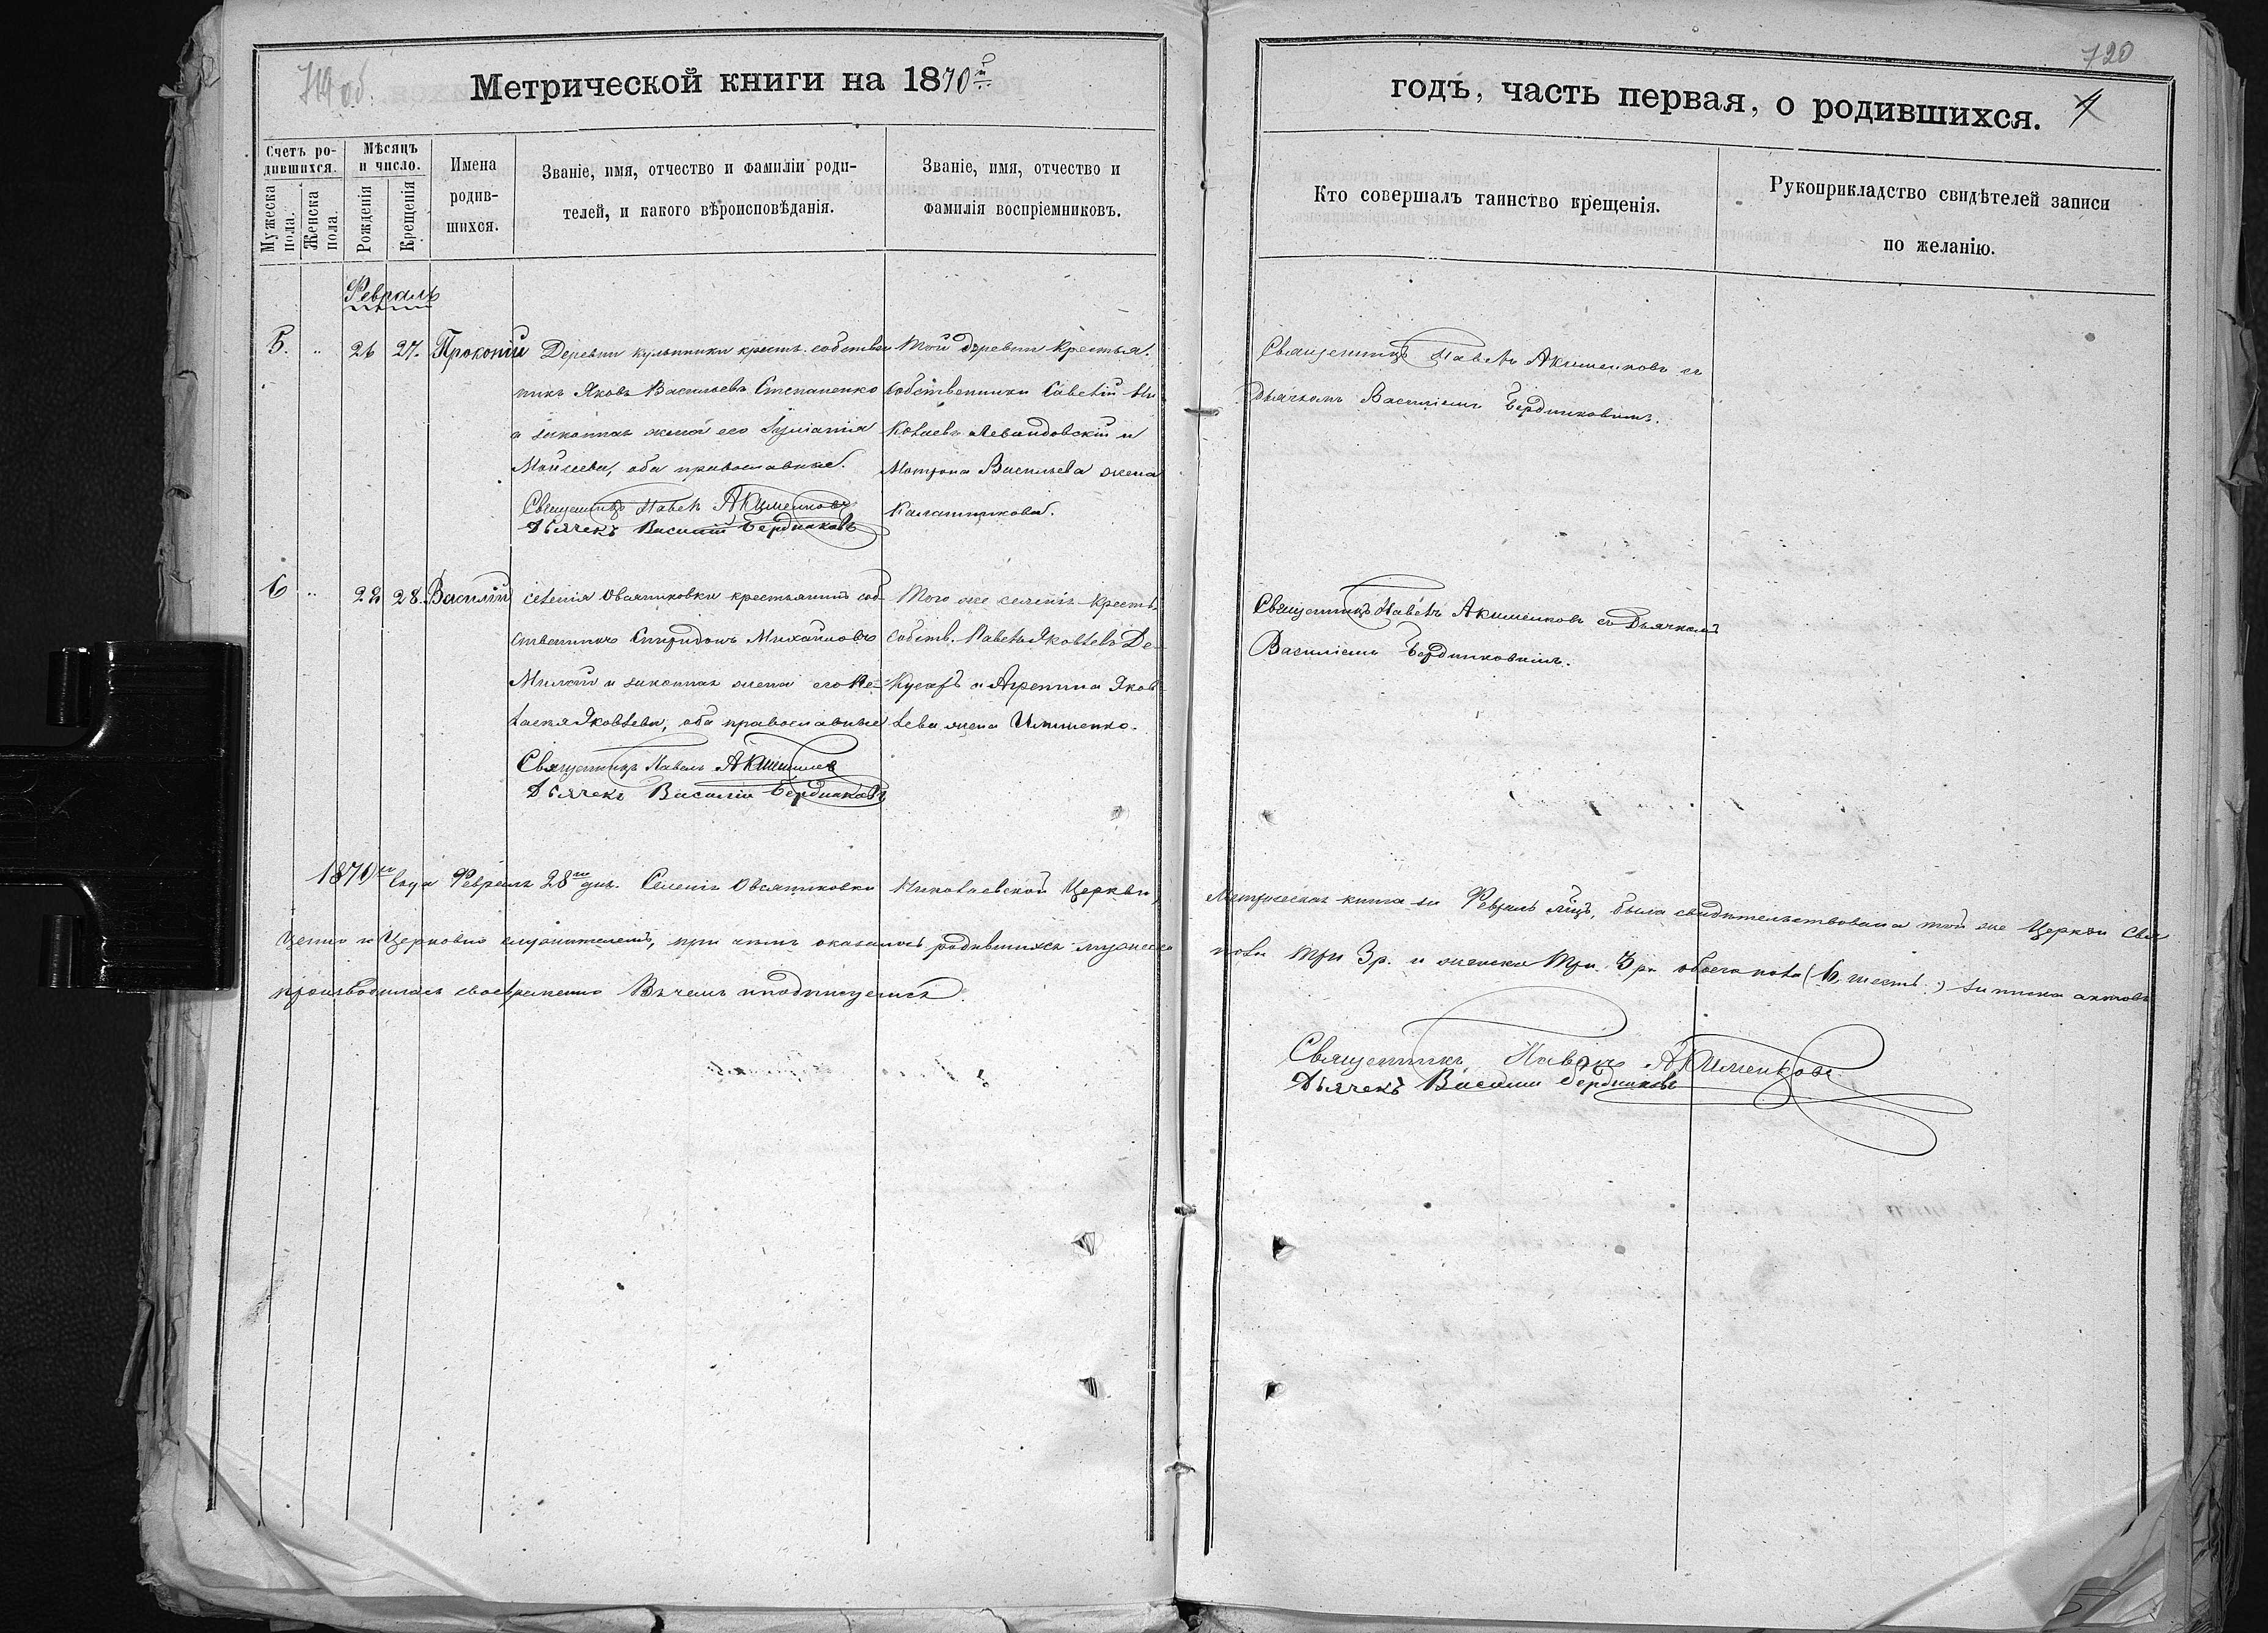 719 об.
Метрической книги на 1870й
Счетъ родившихся.
Мужеска пола.
Женска пола.
Мѣсяцъ и число.
Рожденія
Крещенія
Имена родившихся.
Званіе, имя, отчество и фамиліи роди-
телей, и какого вѣроисповѣданія.
Званіе, имя, отчество и
фамилія воспріемниковъ.
Февраль
5. „ 26 27. Прокопій
Деревни крестъ. собствен
никъ Яковъ Васильевъ Степаненко
и законная жена его
Моисеева, оба православные.
Священникъ Павелъ Акименковъ
Дьячекъ Василій Бердниковъ
Той деревни Крестья.
собственники Савелій Ни
колаевъ Левандовскій и
Матрона Васильева жена
Калашникова.
6 „ 22 28. Василій
селенія Овсянниковки крестьянинъ соб-
ственникъ Спиридонъ Михайловъ
и законная жена его Пе-
лагія Яковлева, оба православные
Священникъ Павелъ Акименковъ
Дьячекъ Василій Бердниковъ
Того же селенія Кресть.
собств. Павелъ Яковлевъ Де-
и Агрепина Яков
лева жена Ильченко.
1870го Года Февраля 28го дня. Селенія Овсянниковки Николаевской Церкви,
Церковно служителемъ, при чемъ оказалось родившихся мужеска
производилась своевременно Въ чемъ и подписуемся.
720
годъ, часть первая, о родившихся.
4
Кто совершалъ таинство крещенія.
Рукоприкладство свидѣтелей записи
по желанію.
Священникъ Павелъ Акименковъ съ
Дьячкомъ Василіемъ Бердниковымъ.
Священникъ Павелъ Акименковъ съ Дьячкомъ
Василіемъ Бердниковымъ.
Метрическая книга за Февраль мѣцъ, была свидѣтельствована той же Церкви Свя
пола три 3 р. и женска три 3 р. обоего пола (6, шесть.) записка актовъ
Священникъ Павелъ Акименковъ
Дьячекъ Василій Бердниковъ